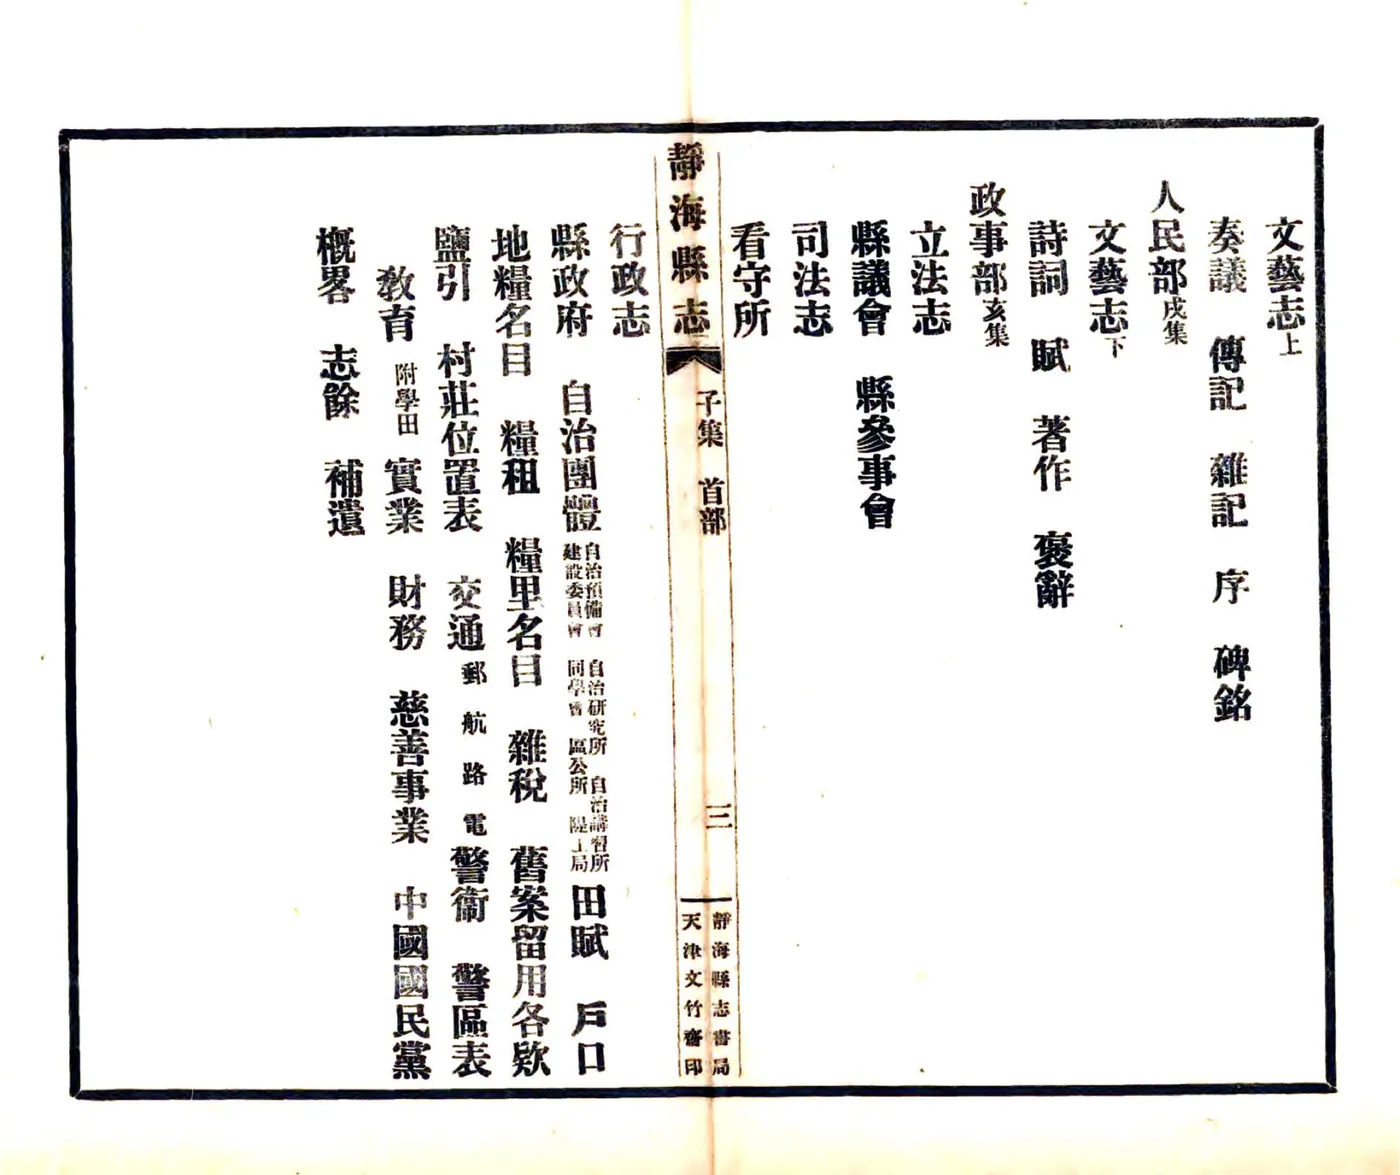 文藝志上
奏議　傳記　雜記　序　碑銘
人民部戌集
文藝志下
詩詞　賦　著作　褒辭
政事部亥集
立法志
縣議會　縣參事會
司法志
看守所
靜海縣志　子集　首部　三　靜海縣志書局
天津文竹齋印
行政志
縣政府　自治團體　自治預備會　自治研究所　自治講習所
建設委員會　同學會　區公所　隄工局　田賦　戶口
地糧名目　糧租　糧里名目　雜稅　舊案留用各欵
鹽引　村莊位置表　交通郵航路電　警衞　警區表
敎育附學田　實業　財務　慈善事業　中國國民黨
槪畧　志餘　補遺